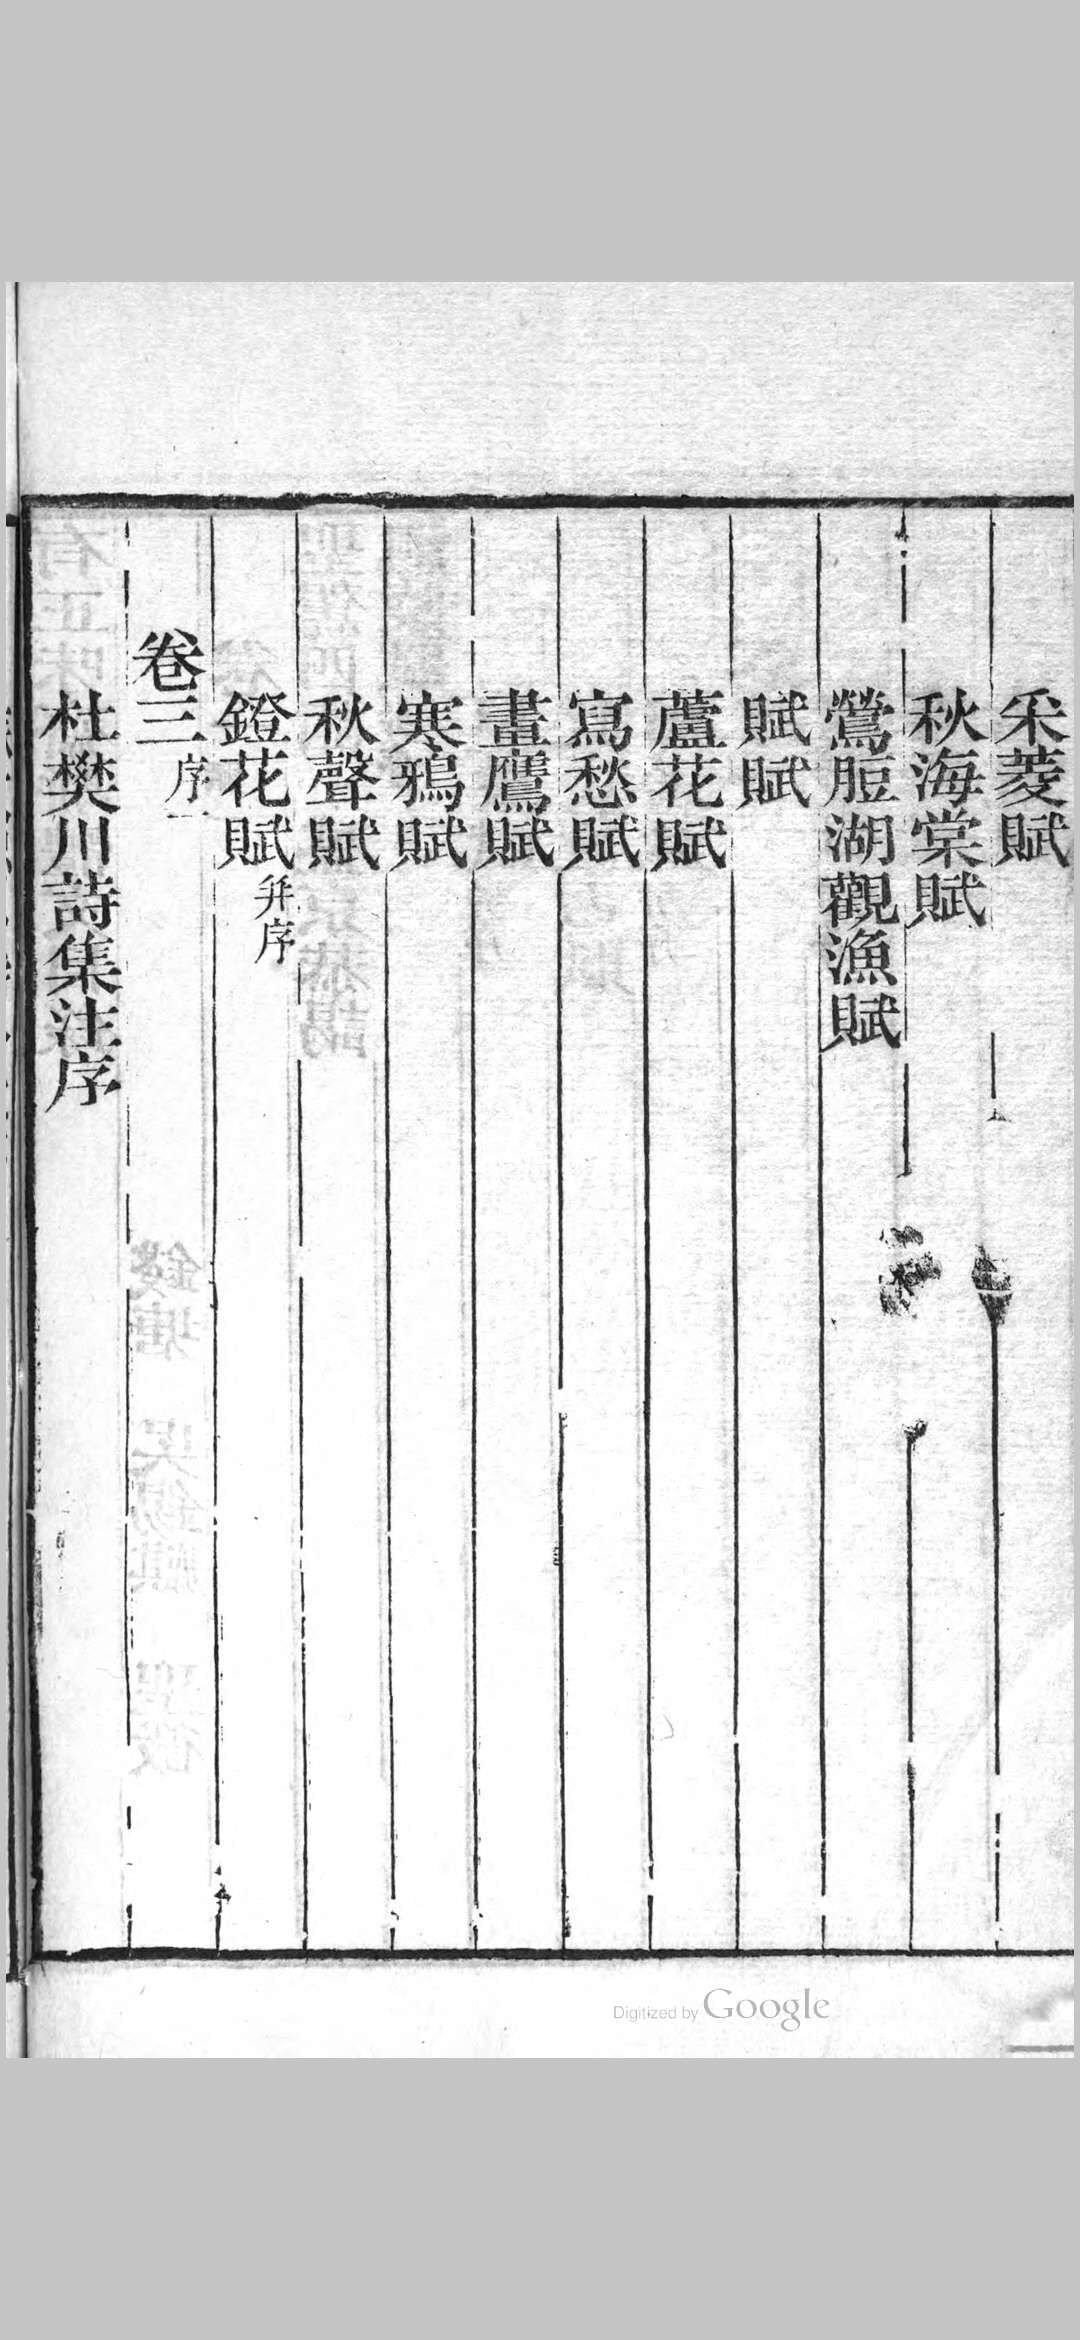 采菱賦
秋海棠賦
鶯脰湖觀漁賦
賦賦
蘆花賦
寫愁賦
畫鷹賦
寒鴉賦
秋聲賦
鐙花賦并序
卷三序一
杜樊川詩集注序
Digitized by Google